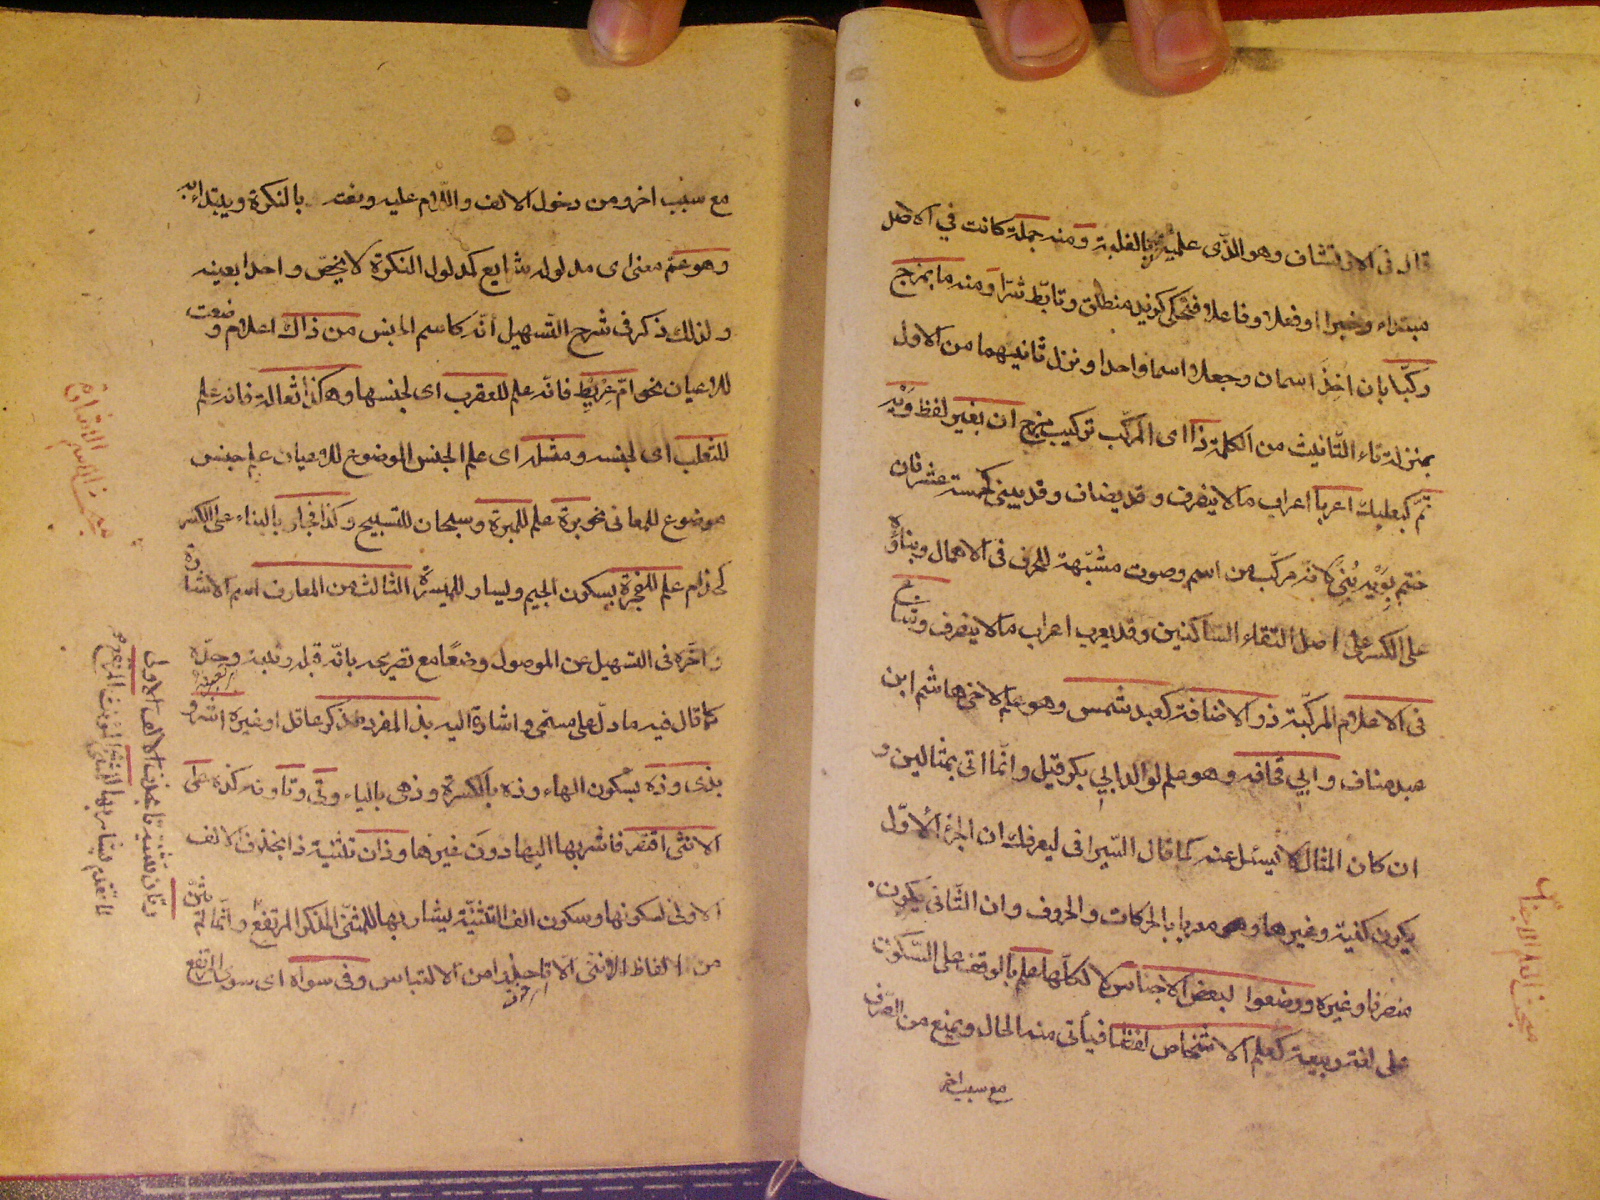 قال فى الارتشاف وهو الذى علميته بالغلبة ومنه جملة كانت في الاصل
مبتداء وخبرا او فعلا وفاعلا فتحكى كزيد منطلق وتابّط شرّا ومنه ما بمزج
ركّبا بان اخذ اسمان وجعلا اسما واحدا ونزل ثانيهما من الاول
بمنزلة تاء التّانيث من الكلمة ذا اى المركّب تركيب مزج ان بغير لفظ وَيْه
تمّ كبعلبك اعربا اعراب ما لا ينصرف وقد يضاف وقد يبنى كخمسة عشر فان
ختم بِوَيْه بُنِىَ لانه مركّب من اسم وصوت مشبّهة للحرف فى الاهمال وبناؤه
على الكسر على اصل التقاء السّاكنين وقد يعرب اعراب ما لا ينصرف وشاع
فى الاعلام المركّبة ذو الاضافة كعبد شمس وهو علم لاخى هاشم ابن
عبد مناف وابي قحافه وهو علم لوالد ابي بكر قيل وانّما اتى بمثالين و
ان كان المثال لا يسئل عنه كما قال السّيرافى ليعرفك ان الجزء الاوّل
يكون كنية وغيرها وهو معربا بالحركات والحروف وان الثّانى يكون
منصرفا وغيره ووضعوا لبعض الاجناس لا لكلّها علم بالوقف على السّكون
على لغة ربيعة كعلم الاشخاص لفظا فيأتى منه الحال ويمنع من الصّرف
مع سبب اخر
مبحث علم الاجناس
مع سبب اخر ومن دخول الالف واللام عليه ونعته بالنكرة ويبتداء به
وهو عمّ معنى اى مدلوله شايع كمدلول النكرة لا يخصّ واحدا بعينه
ولذلك ذكر فى شرح التّسهيل انّه كاسم الجنس من ذاك اعلام وضعت
للاعيان نحو امّ عِرْيَط فانّه علم للعقرب اى لجنسها وهكذا ثعالة فانه علم
للثعلب اى لجنسه ومثله اى علم الجنس الموضوع للاعيان علم جنس
موضوع للمعانى نحو برة علم للمبرة وسبحان للتسبيح وكذا فجار بالبناء على الكسر
كحذام علم للفجرة بسكون الجيم ويسار للميسرة الثالث من المعارف اسم الاشارة
واخّره فى التسهيل عن الموصول وضعًا مع تصريحه بانّه قبله رتبة وحدّه
كما قال فيه ما دلّ على مسمى واشارة اليه بذا لمفرد مذكر عاقل او غيره اشر و
بذى وذه بسكون الهاء وذه بالكسرة وذهى بالياء وتى وتا وته كذه على
الانثى اقتصر فاشر بها اليها دون غيرها وذان تثنية ذا بحذف الالف
الاولى لسكونها وسكون الف التثنيّة يشار بها للمثنى المذكر المرتفع وانّما لم يثنّ
من الفاظ الانثى الا تا حذرا من الالتباس وفى سواه اى سوى المرتفع
مبحث اسم الاشارة
وتان تثنية تا بحذف الالف الاولى
لما تقدم يشار بها للمثنى المؤنث المرتفع